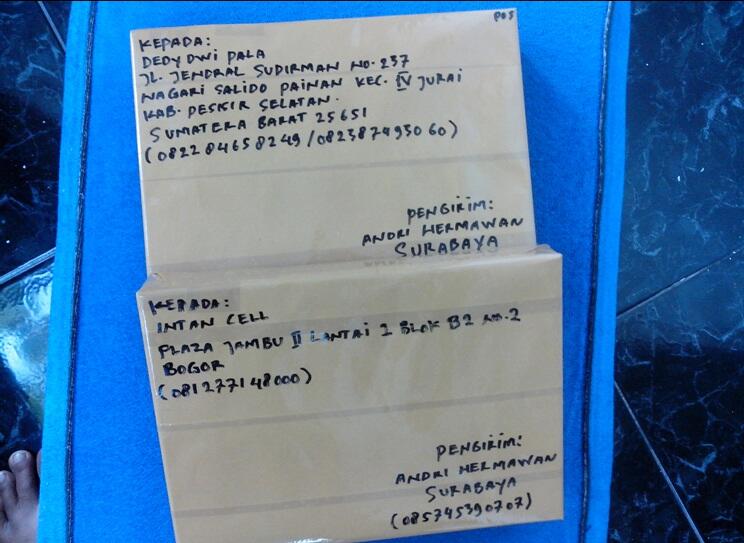 POS
KEPADA:
DEDY DWI PALA
JL. JENDRAL SUDIRMAN NO. 237
NAGARI SALIDO PAINAN KEC. IV JURAI
KAB. PESISIR SELATAN.
SUMATERA BARAT 25651
(082284658249/082387493060)
PENGIRIM:
ANDRI HERMAWAN
SURABAYA
KEPADA:
INTAN CELL
PLAZA JAMBU II LANTAI 1 BLOK B2 NO.2
BOGOR
(081277148000)
PENGIRIM:
ANDRI HERMAWAN
SURABAYA
(085745390707)